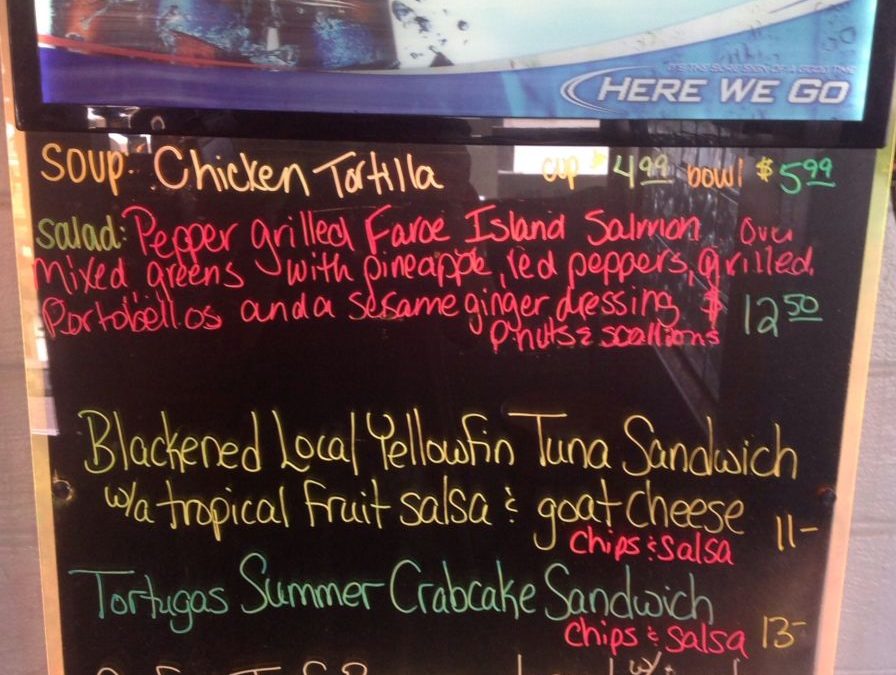 HERE WE GO
SOUP: Chicken Tortilla cup $4.99 bowl $5.99
salad: Pepper grilled Faroe Island Salmon Over
Mixed greens with pineapple, red peppers, grilled
Portobellos and a sesame ginger dressing $12.50
P nuts & scallions
Blackened Local Yellowfin Tuna Sandwich
w/a tropical fruit salsa & goat cheese 11-
chips & salsa
Tortugas Summer Crabcake Sandwich
chips & salsa 13-
w/